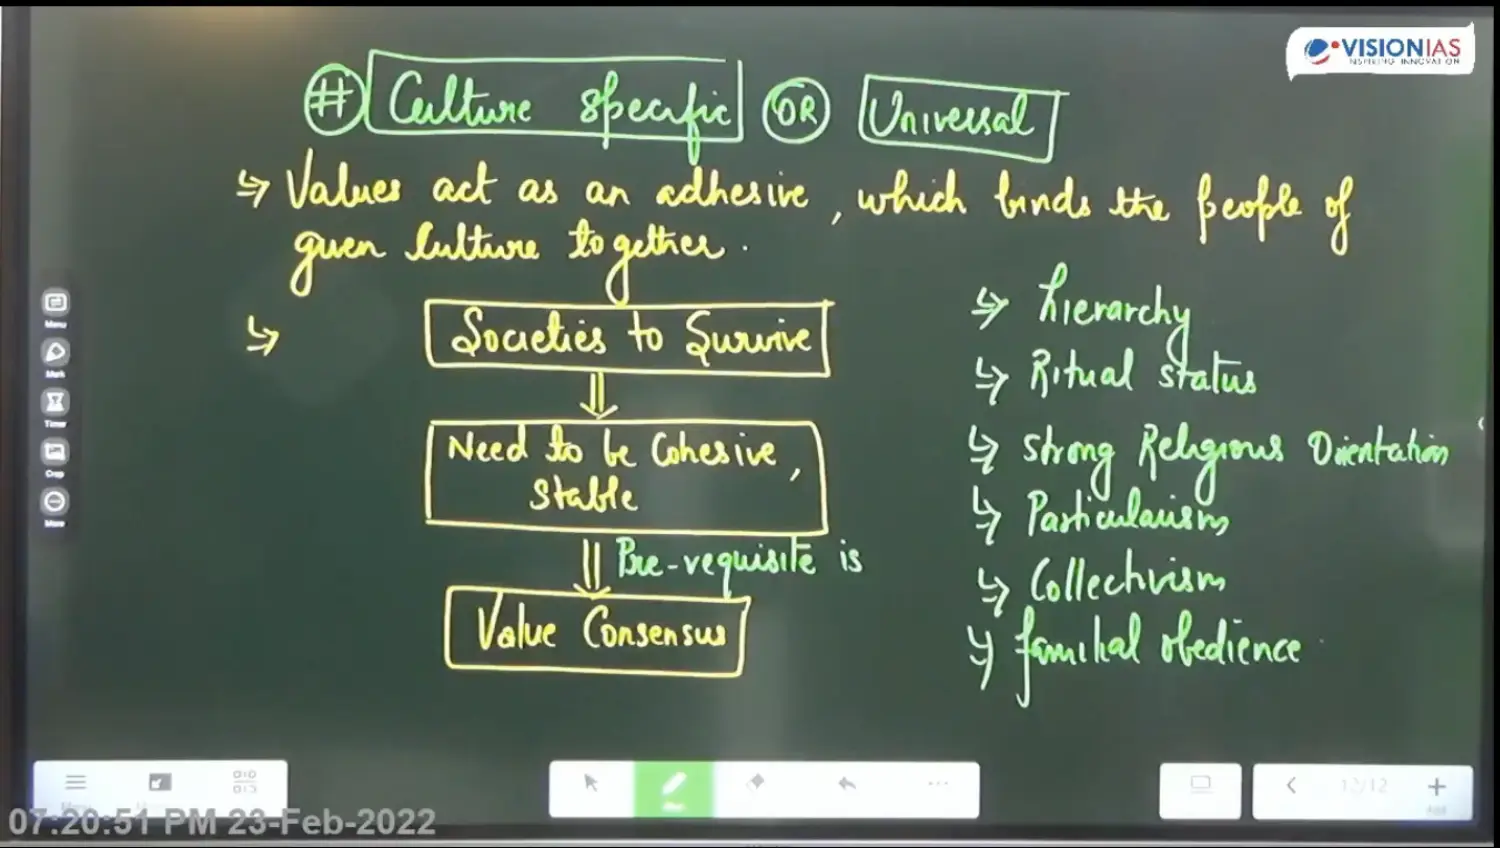 VISIONIAS
INSPIRING INNOVATION
# Culture specific OR Universal
↳ Values act as an adhesive, which binds the people of
given Culture together.
↳ Societies to Survive
Need to be Cohesive,
stable
Pre-requisite is
Value Consensus
↳ hierarchy
↳ Ritual status
↳ Strong Religious Orientation
↳ Particularism
↳ Collectivism
↳ familial obedience
Menu
Mark
Timer
Crop
More
12/12
Add
07:20:51 PM 23-Feb-2022